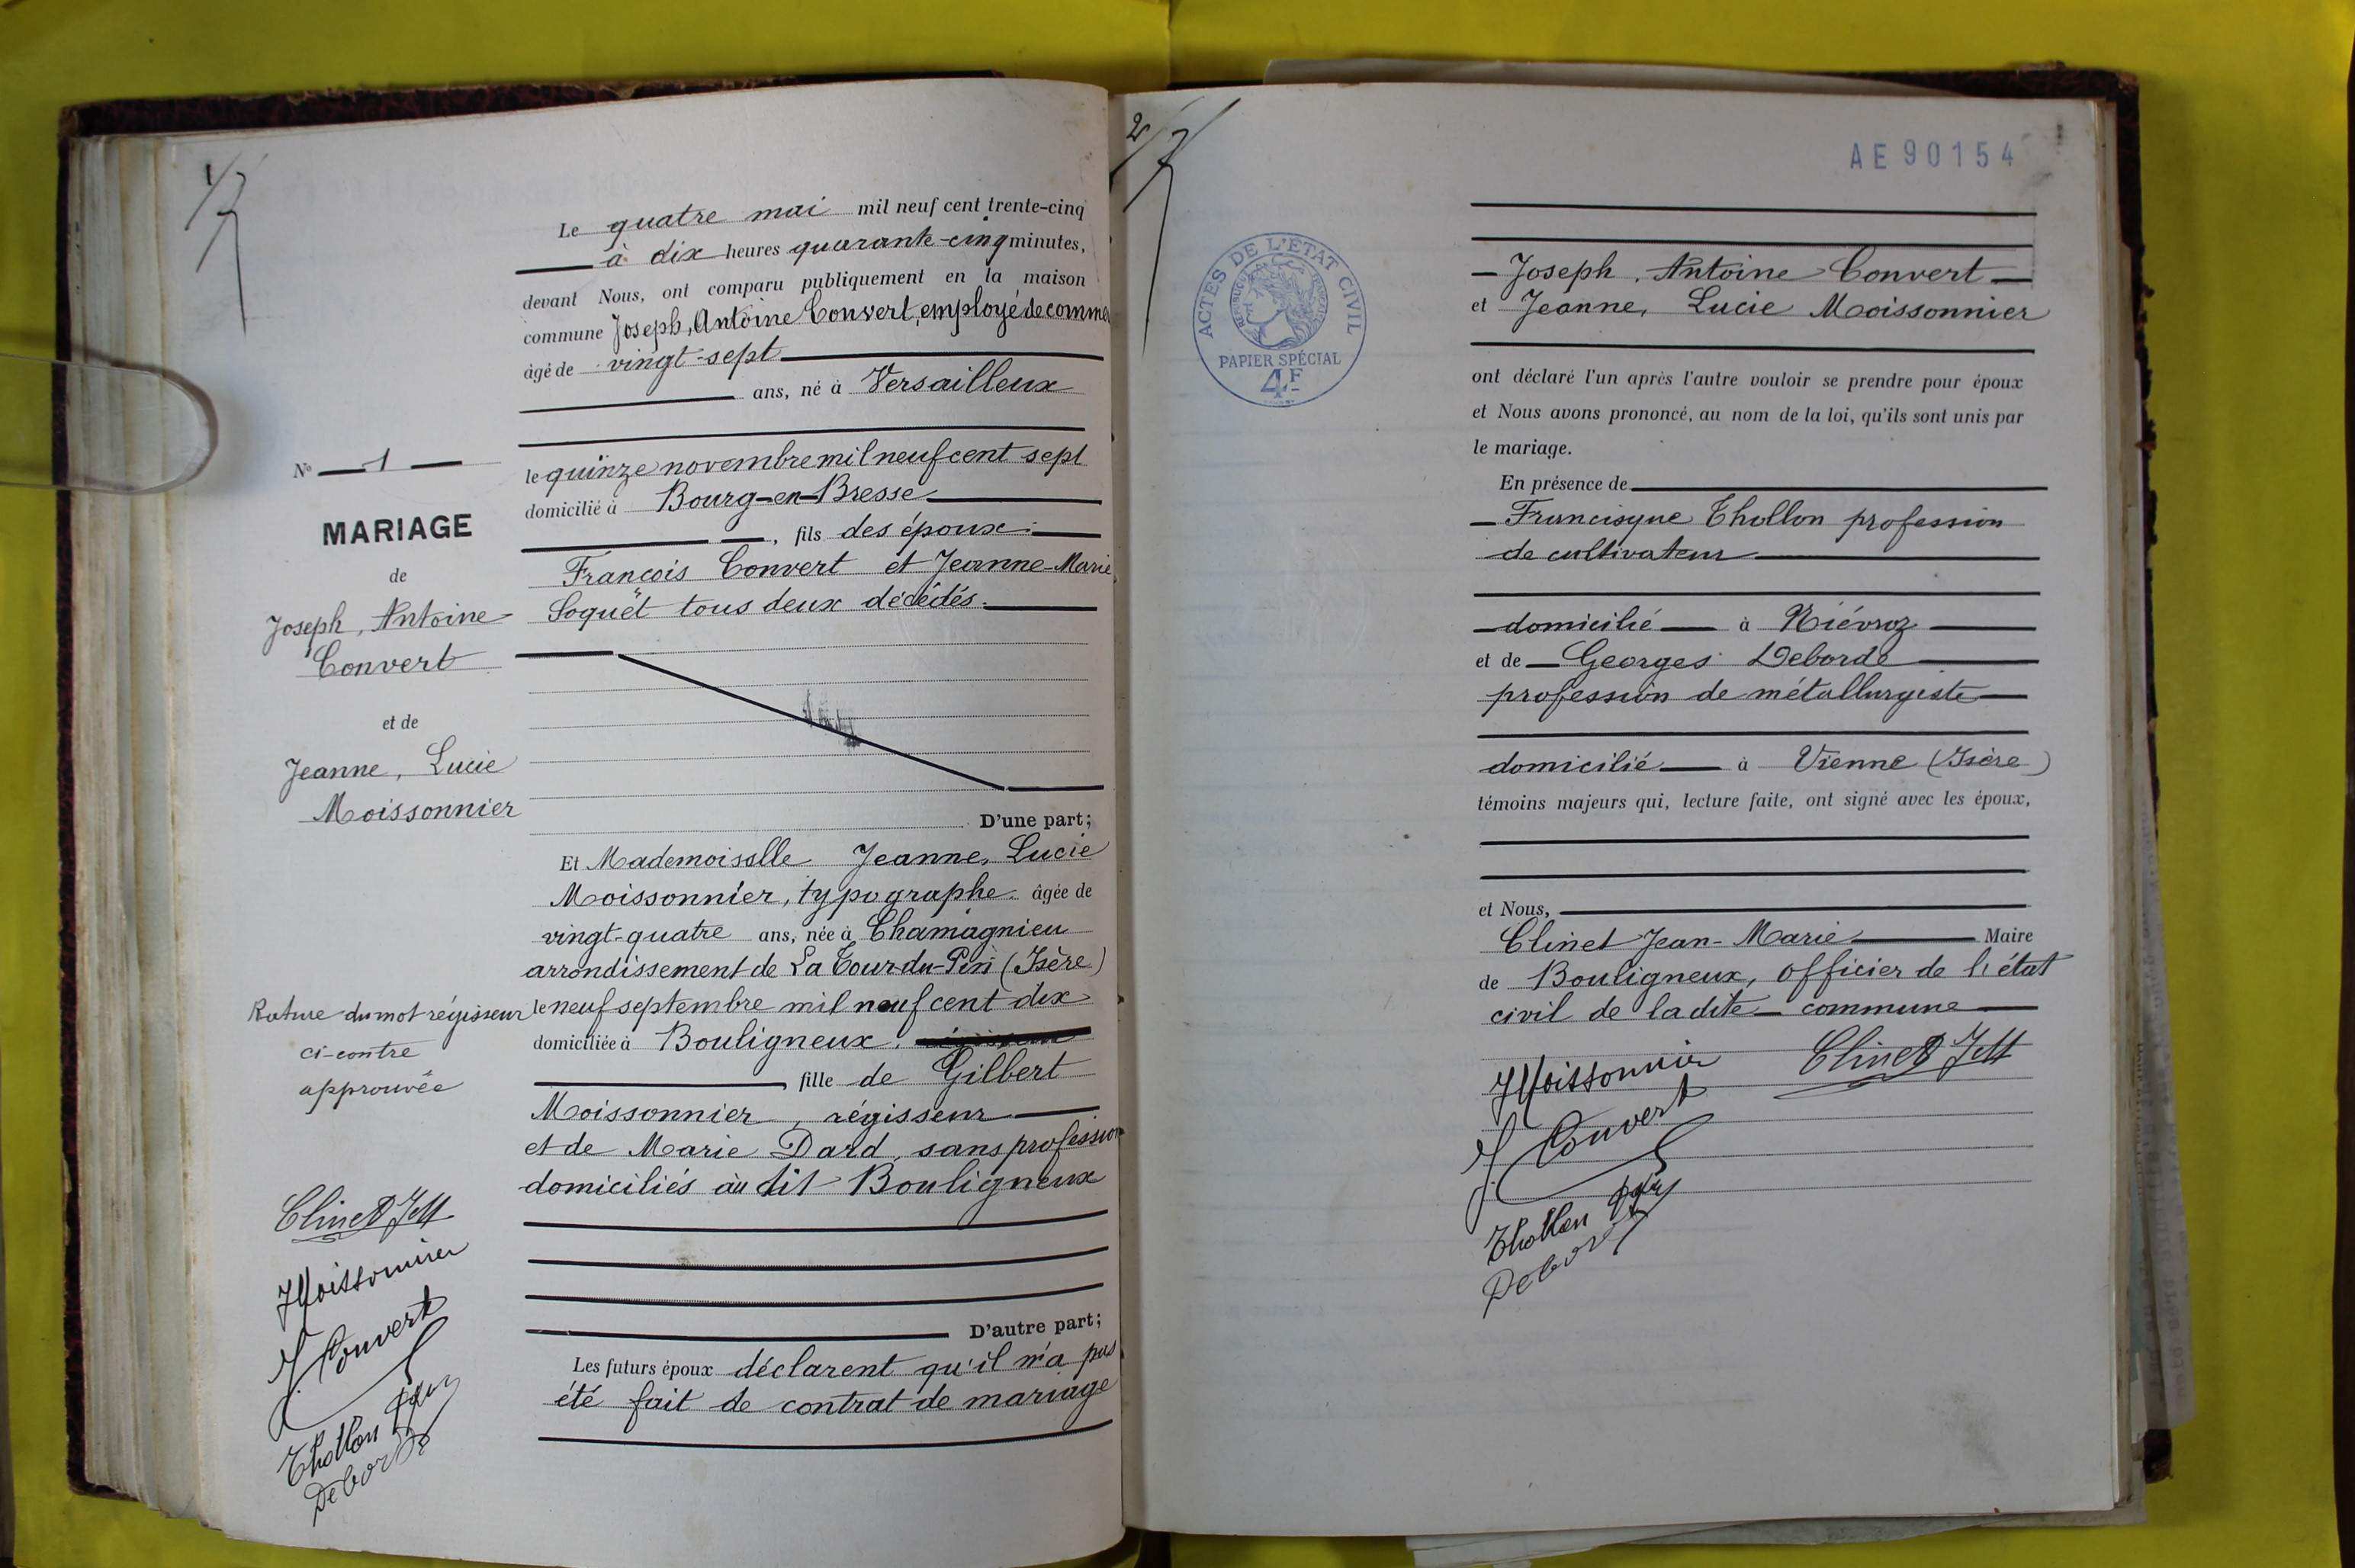 1/7
Le quatre mai mil neuf cent trente-cinq
à dix heures quarante-cinq minutes,
devant Nous, ont comparu publiquement en la maison
commune Joseph, Antoine Convert, employé de comme
âgé de vingt-sept
ans, né à Versailleux
le quinze novembre mil neuf cent sept
domicilié à Bourg-en-Bresse
, fils des époux:
François Convert et Jeanne-Marie
Soquët tous deux décédés.
D'une part;
Et Mademoiselle Jeanne, Lucie
Moissonnier, typographe. âgée de
vingt-quatre ans, née à Chamagnieu
arrondissement de La Tour-du-Pin (Isère)
le neuf septembre mil neuf cent dix
domiciliée à Bouligneux.
fille de Gilbert
Moissonnier, régisseur
et de Marie Dard, sans profession
domiciliés au dit Bouligneux
D'autre part;
Les futurs époux déclarent qu'il n'a pas
été fait de contrat de mariage
N° 1
MARIAGE
de
Joseph, Antoine
Convert
et de
Jeanne, Lucie
Moissonnier
Rature du mot régisseur
ci-contre
approuvée
Clinet JM
JMoissonnier
J. Convert
Thollon
Deborde
2/7
AE90154
ACTES DE L'ETAT CIVIL
PAPIER SPÉCIAL
4F
Joseph, Antoine Convert
et Jeanne, Lucie Moissonnier
ont déclaré l'un après l'autre vouloir se prendre pour époux
et Nous avons prononcé, au nom de la loi, qu'ils sont unis par
le mariage.
En présence de
Francisque Thollon profession
de cultivateur
domicilié à Niévroz
et de Georges Deborde
profession de métallurgiste
domicilié à Vienne (Isère)
témoins majeurs qui, lecture faite, ont signé avec les époux,
et Nous,
Clinet Jean-Marie Maire
de Bouligneux, officier de l'état
civil de ladite commune
JMoissonnier Clinet JM
J. Convert
Thollon
Deborde